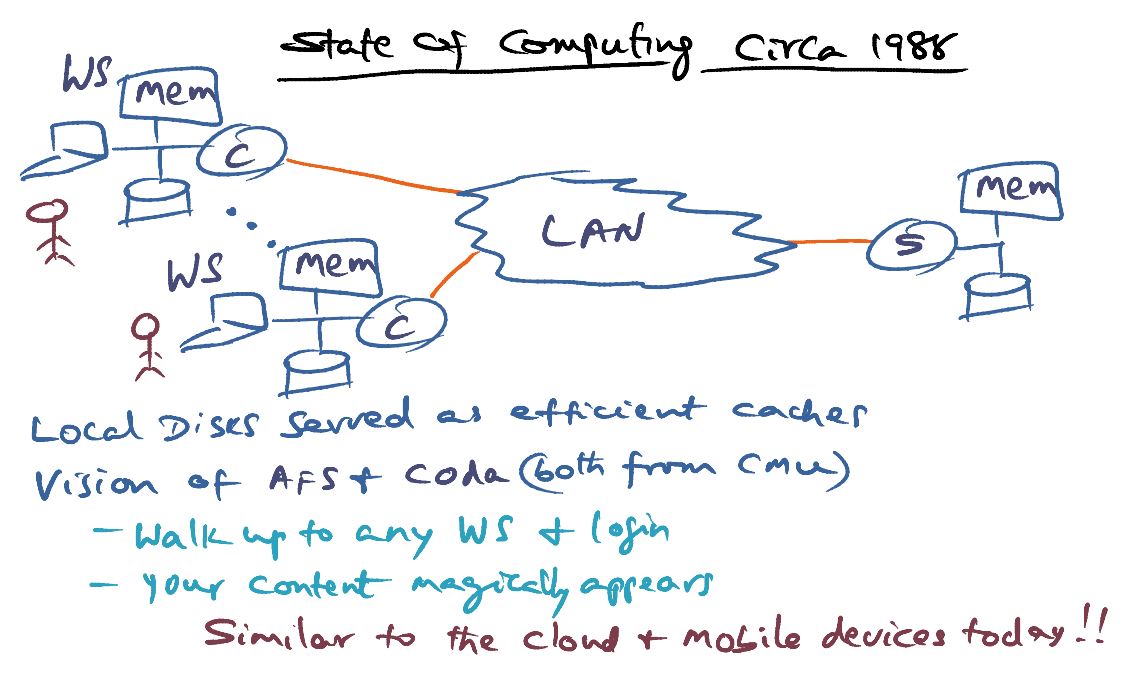 State of Computing Circa 1988
WS
mem
C
WS
mem
C
LAN
S
mem
Local Disks served as efficient caches
Vision of AFS + Coda (both from CMU)
- Walk up to any WS + login
- Your content magically appears
Similar to the cloud + mobile devices today!!